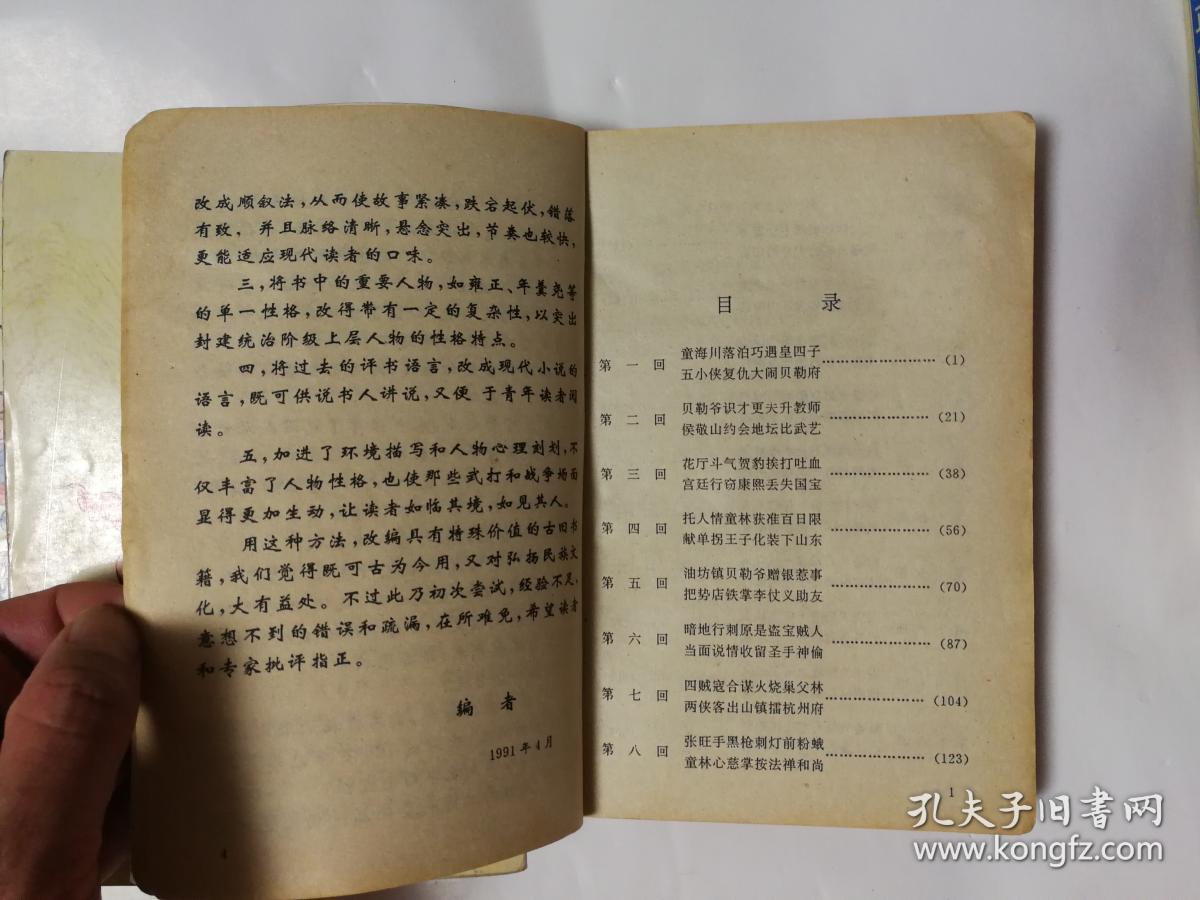 改成顺叙法,从而使故事紧凑,跌宕起伏,错落
有致,并且脉络清晰,悬念突出,节奏也较快,
更能适应现代读者的口味。
三,将书中的重要人物,如雍正、年羹尧等
的单一性格,改得带有一定的复杂性,以突出
封建统治阶级上层人物的性格特点。
四,将过去的评书语言,改成现代小说的
语言,既可供说书人讲说,又便于青年读者阅
读。
五,加进了环境描写和人物心理刻划,不
仅丰富了人物性格,也使那些武打和战争场面
显得更加生动,让读者如临其境,如见其人。
用这种方法,改编具有特殊价值的古旧书
籍,我们觉得既可古为今用,又对弘扬民族文
化,大有益处。不过此乃初次尝试,经验不足,
意想不到的错误和疏漏,在所难免,希望读者
和专家批评指正。
编者
1991年4月
4
目录
第一回 童海川落泊巧遇皇四子
五小侠复仇大闹贝勒府 (1)
第二回 贝勒爷识才更夫升教师
侯敬山约会地坛比武艺 (21)
第三回 花厅斗气贺豹挨打吐血
宫廷行窃康熙丢失国宝 (38)
第四回 托人情童林获准百日限
献单拐王子化装下山东 (56)
第五回 油坊镇贝勒爷赠银惹事
把势店铁掌李仗义助友 (70)
第六回 暗地行刺原是盗宝贼人
当面说情收留圣手神偷 (87)
第七回 四贼寇合谋火烧巢父林
两侠客出山镇擂杭州府 (104)
第八回 张旺手黑枪刺灯前粉蛾
童林心慈掌按法禅和尚 (123)
1
孔夫子旧书网
www.kongfz.com